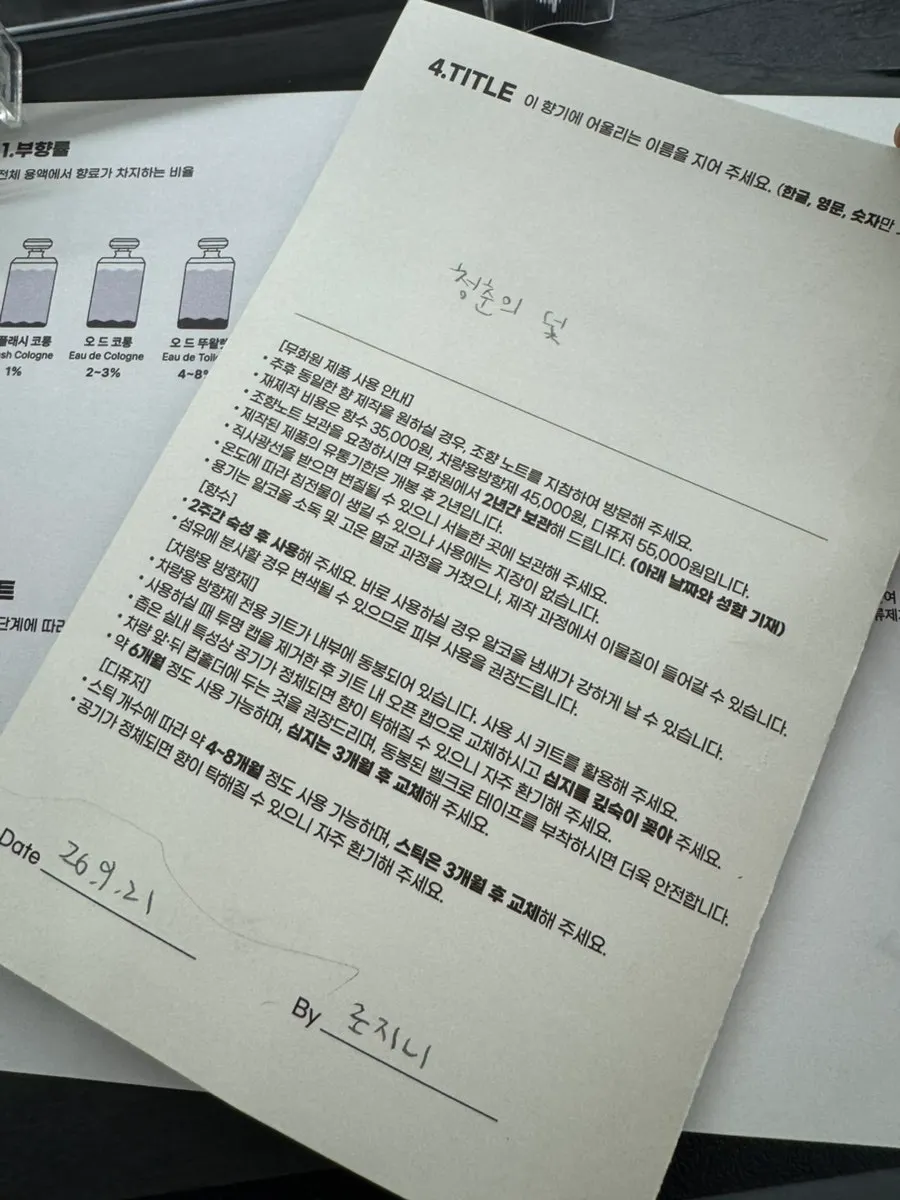 4.TITLE 이 향기에 어울리는 이름을 지어 주세요. (한글, 영문, 숫자만
청춘의 덫
[무화원 제품 사용 안내]
• 추후 동일한 향 제작을 원하실 경우, 조향 노트를 지참하여 방문해 주세요.
• 재제작 비용은 향수 35,000원, 차량용방향제 45,000원, 디퓨저 55,000원입니다.
• 조향노트 보관을 요청하시면 무화원에서 2년간 보관해 드립니다. (아래 날짜와 성함 기재)
• 제작된 제품의 유통기한은 개봉 후 2년입니다.
• 직사광선을 받으면 변질될 수 있으니 서늘한 곳에 보관해 주세요.
• 온도에 따라 침전물이 생길 수 있으나 사용에는 지장이 없습니다.
• 용기는 알코올 소독 및 고온 멸균 과정을 거쳤으나, 제작 과정에서 이물질이 들어갈 수 있습니다.
[향수]
• 2주간 숙성 후 사용해 주세요. 바로 사용하실 경우 알코올 냄새가 강하게 날 수 있습니다.
• 섬유에 분사할 경우 변색될 수 있으므로 피부 사용을 권장드립니다.
[차량용 방향제]
• 차량용 방향제 전용 키트가 내부에 동봉되어 있습니다. 사용 시 키트를 활용해 주세요.
• 사용하실 때 투명 캡을 제거한 후 키트 내 오픈 캡으로 교체하시고 심지를 깊숙이 꽂아 주세요.
• 좁은 실내 특성상 공기가 정체되면 향이 탁해질 수 있으니 자주 환기해 주세요.
• 차량 앞·뒤 컵홀더에 두는 것을 권장드리며, 동봉된 벨크로 테이프를 부착하시면 더욱 안전합니다.
• 약 6개월 정도 사용 가능하며, 심지는 3개월 후 교체해 주세요.
[디퓨저]
• 스틱 개수에 따라 약 4~8개월 정도 사용 가능하며, 스틱은 3개월 후 교체해 주세요.
• 공기가 정체되면 향이 탁해질 수 있으니 자주 환기해 주세요.
Date 26.9.21
By 로지니
1.부향률
전체 용액에서 향료가 차지하는 비율
플래시 코롱 오 드 코롱 오 드 뚜왈렛
sh Cologne Eau de Cologne Eau de Toil
1% 2~3% 4~8%
트
단계에 따라
여